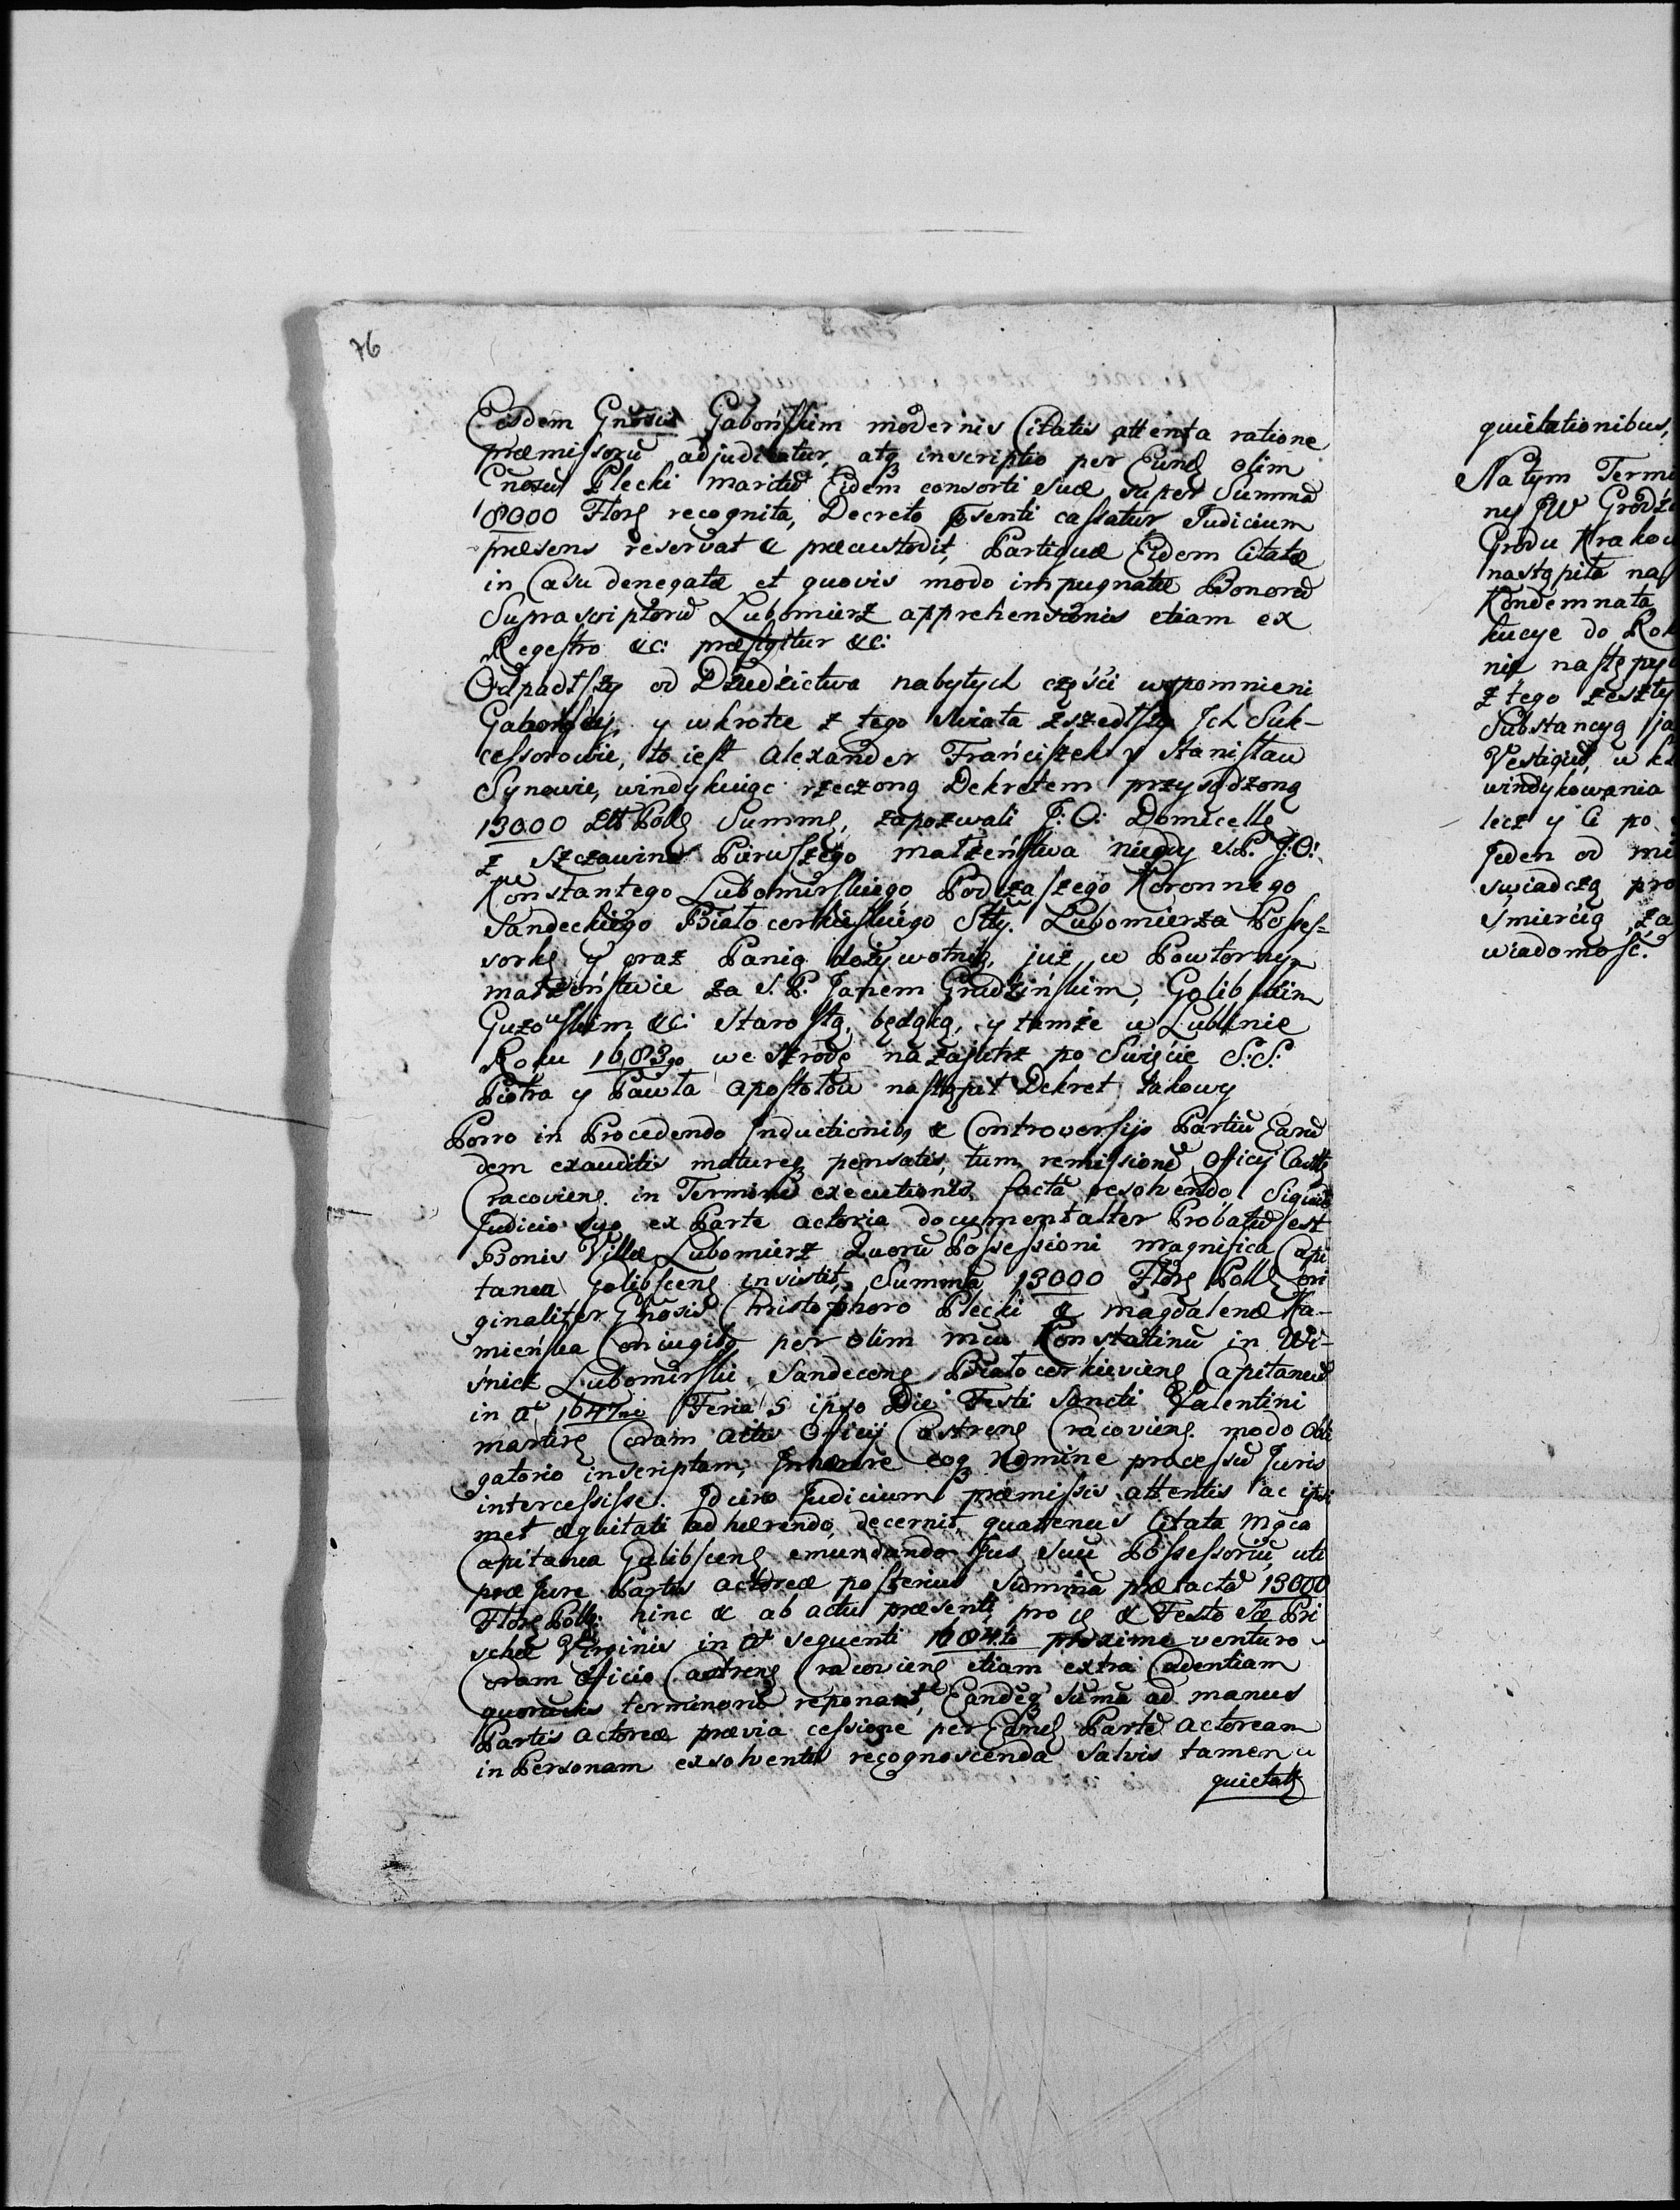 76
Eisdem Gnosis Gabońskim modernis Citatis attenta ratione
præmissorū adjudicatur, atq inscriptio per Eund olim
Gnosū Plecki maritū Eidem consorti suæ super Summā
18000 Flor recognita, Decreto psenti cassatur Judicium
præsens reservat & præcustodit, Partique Eidem Citatæ
in Casu denegatæ et quovis modo impugnatæ Bonorū
Suprascriptorū Lubomierz apprehensionis etiam ex
Regestro &c: præfigitur &c:
Odpadłszy od Dziedzictwa nabytych części wspomnieni
Gabońscy, y wkrotce z tego swiata zszedłszy Jch Suk-
cessorowie, to iest Alexander Franciszek y Stanisław
Synowie, windykuiąc rzeczoną Dekretem przysądzoną
13000 Złł Poll Summę, zapozwali J: O: Domicellę
z Szczawina Pierwszego małżeństwa niegdy S.P. J:O:
Konstantego Lubomirskiego Podczaszego Koronnego
Sandeckiego Białocerkieskiego Stty. Lubomierza Posses-
sorkę y oraz Panią dożywotnią, już w Powtornym
małżeństwie za S. P. Janem Grudzińskim, Golibskim
Guzowskim &c: Starostą, będącą, y tamże w Lublinie
Roku 1683go we Srzodę nazajutrz po Swięcie S:S:
Piotra y Pawła Apostołów nastąpił Dekret takowy
Porro in Procedendo Inductionib & Controversijs Partiū Earū
dem exauditis matureq pensatis, tum remissionē Officij Castr
Cracovien in Terminū executionis factā resolvendo, Siquidē
Judicio suo ex Parte actorea documentaliter Probatū est
Bonis Villæ Lubomierz Quorū Possessioni magnifica Capi
tanea Golibscens insistit, Summā 13000 Flor Poll ori
ginaliter Gnosis Christophoro Plecki & Magdalenæ Ka-
mieńska Coniugib per olim mcū Konstatinū in Wi-
śnicz Lubomirski, Sandecen Białocerkievien Capitaneū
in Ao 1647mo Feria 5 ipso Die Festi Sancti Valentini
martire Coram Actis Officij Castren Cracovien modo Obli
gatorio inscriptam, Inhærere eoq Nomine processū Juris
intercessisse. Jdcirco Judicium præmissis attentis ac ipsi
met æquitati adhærendo, decernit, quatenus Citata Mgca
Capitanea Golibscens emundando Jus Suū Possessoriū uti
præ Jure Partis actoreæ posterius Summā præfactā 13000
Flor Poll: hinc & ab actu præsenti, pro & Festo Sæ Pri
schæ Virginis in Ao sequenti 1684to proxime venturo
Coram Officio Castren Cracovien etiam extra Cadentiam
quorūvis terminorū reponat, Eandēq Sumā ad manus
Partis actoreæ prævia cessione per Eand Partē actoream
in Personam exsolventis recognoscenda Salvis tamen
quietat
quietationibus,
Na tym Termi
ny JW Grodzi
Grodu Krakow
nastąpiła na
Kondemnata
kucye do Rok
nie następuj
z tego zeszły
Substancyą ja
Vestigiū, w k
windykowania
lecz y Ci po
Jeden od mi
swiadczą pro
Smiercią, za
wiadomość.